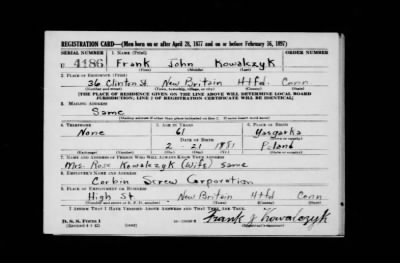 REGISTRATION CARD—(Men born on or after April 28, 1877 and on or before February 16, 1897)
SERIAL NUMBER 1. NAME (Print) ORDER NUMBER
U 4186 Frank John Kowalczyk
(First) (Middle) (Last)
2. PLACE OF RESIDENCE (Print)
36 Clinton St. New Britain Htfd. Conn
(Number and street) (Town, township, village, or city) (County) (State)
[THE PLACE OF RESIDENCE GIVEN ON THE LINE ABOVE WILL DETERMINE LOCAL BOARD
JURISDICTION; LINE 2 OF REGISTRATION CERTIFICATE WILL BE IDENTICAL]
3. MAILING ADDRESS
Same
(Mailing address if other than place indicated on line 2. If same insert word same)
4. TELEPHONE 5. AGE IN YEARS 6. PLACE OF BIRTH
None 61
DATE OF BIRTH (Town or county)
2 - 21 - 1881 Poland
(Exchange) (Number) (Mo.) (Day) (Yr.) (State or country)
7. NAME AND ADDRESS OF PERSON WHO WILL ALWAYS KNOW YOUR ADDRESS
Mrs. Rose Kowalczyk (Wife) same
8. EMPLOYER'S NAME AND ADDRESS
Corbin Screw Corporation
9. PLACE OF EMPLOYMENT OR BUSINESS
High St New Britain Htfd Conn
(Number and street or R. F. D. number) (Town) (County) (State)
I AFFIRM THAT I HAVE VERIFIED ABOVE ANSWERS AND THAT THEY ARE TRUE.
D. S. S. Form 1
(Revised 4-1-42) (over) Frank J Kowalczyk